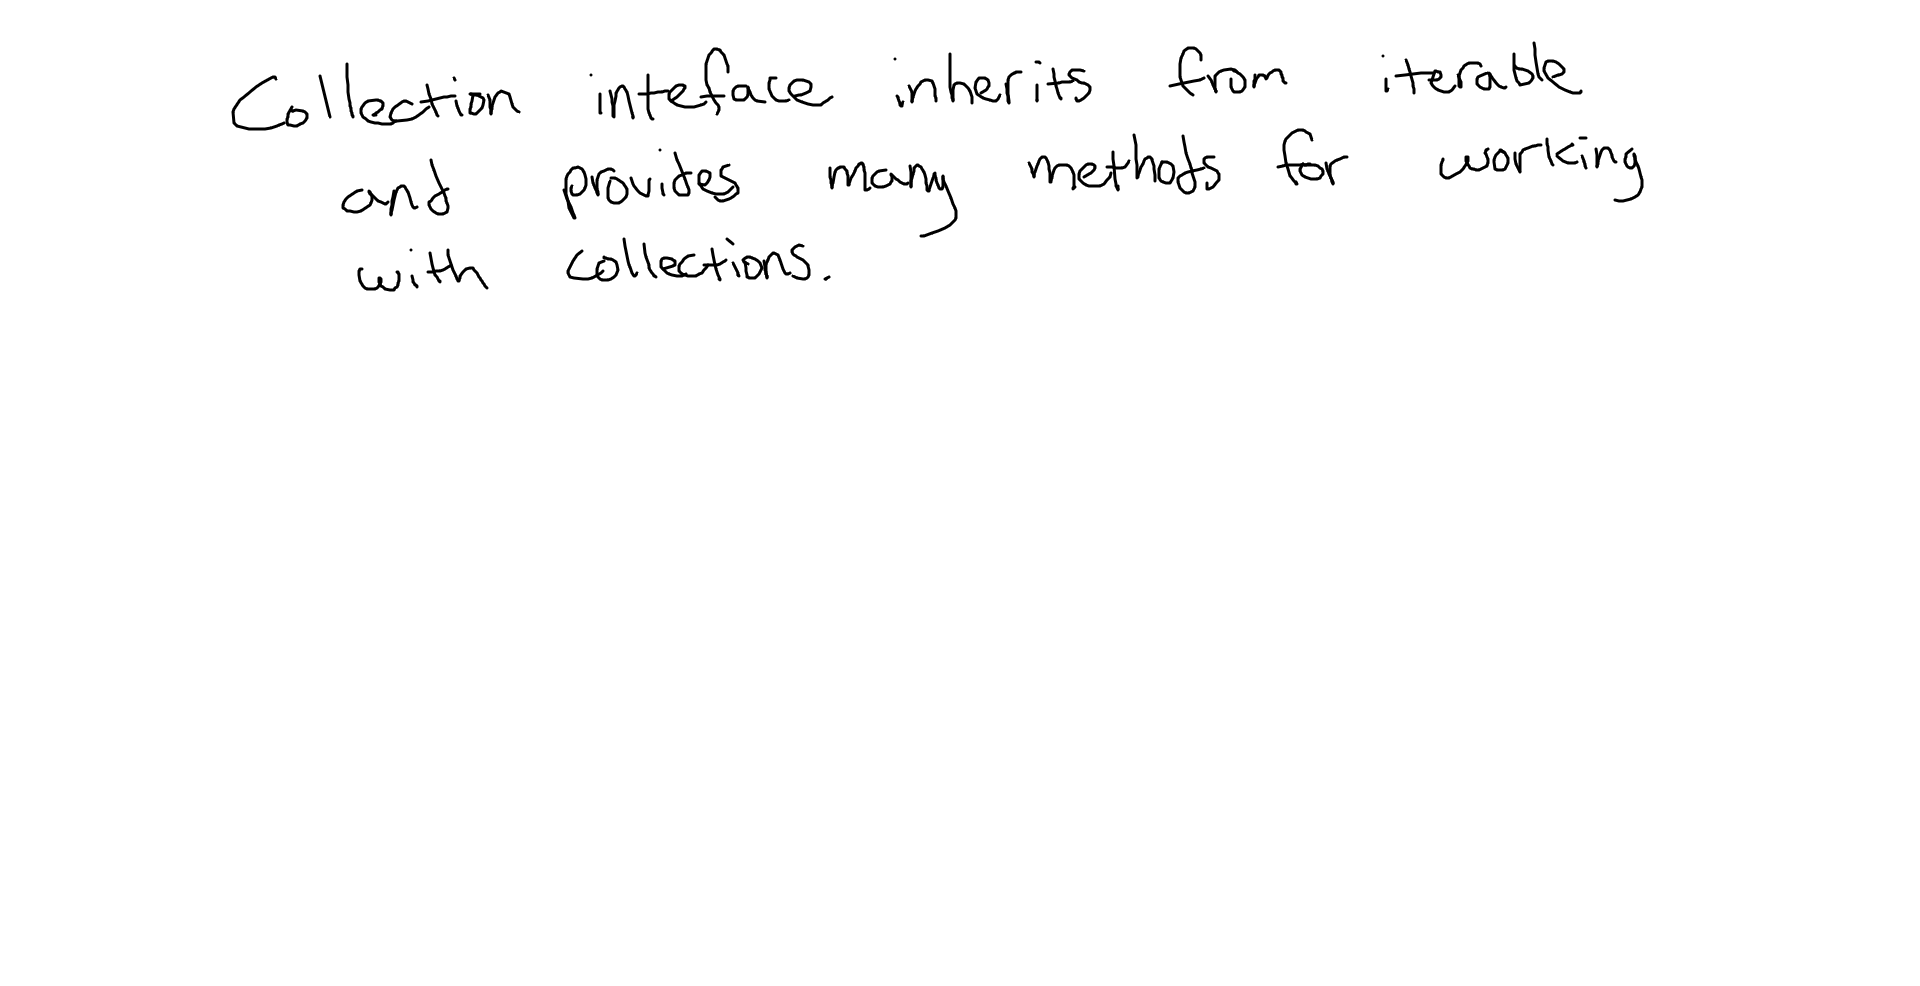 Collection inteface inherits from iterable
and provides many methods for working
with collections.